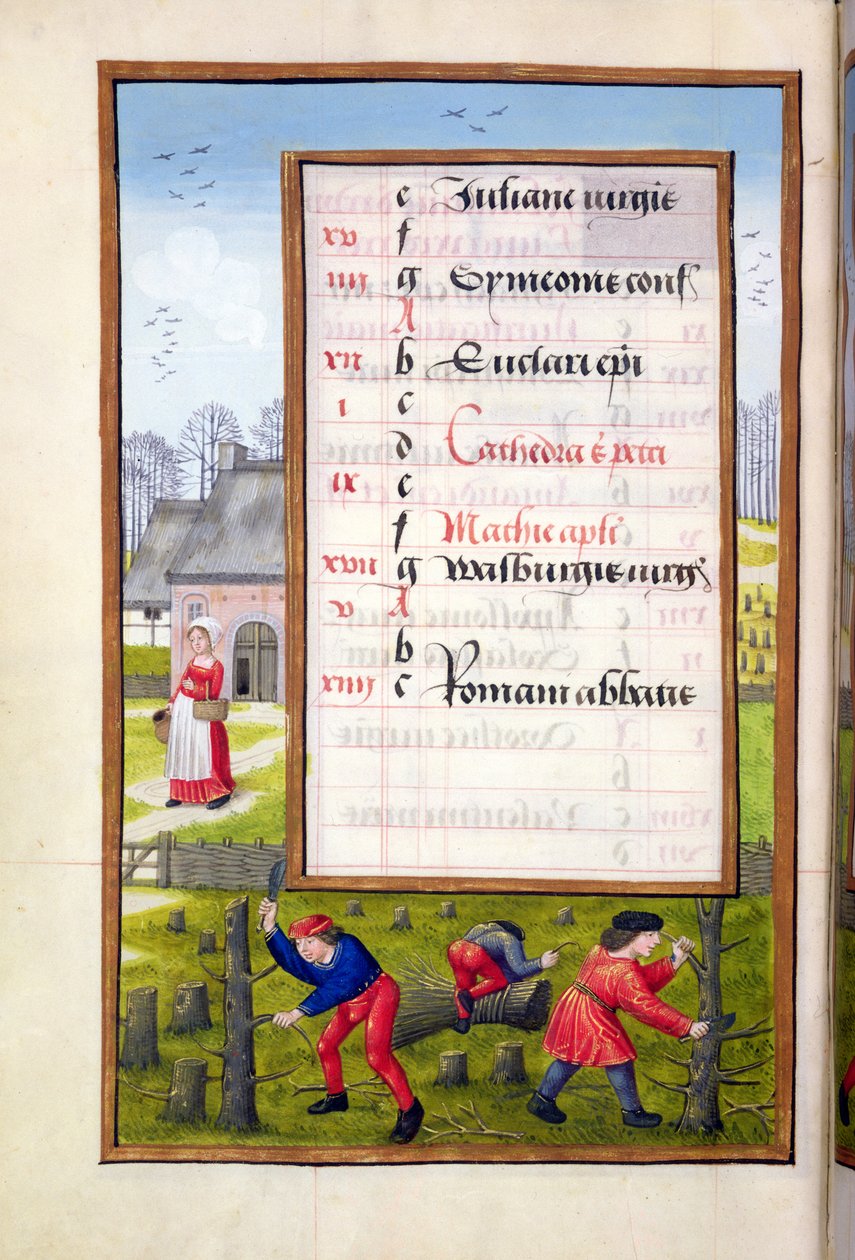 e Juliane virgīs
xv f
iiij g Symeonis conf
A
xij b Eucharij ep̄i
i c
d Cathedra s̄ petri
ix e
f Mathie apl̄i
xvij g Walburgis virgs
v A
b
xiiij c Romani abbatis